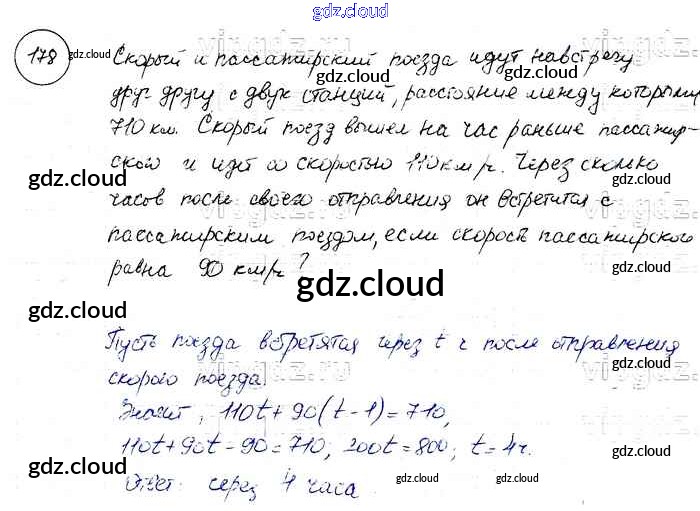 gdz.cloud
178
Скорый и пассажирский поезда идут навстречу
друг другу с двух станций, расстояние между которыми
710 км. Скорый поезд вышел на час раньше пассажир-
ского и идёт со скоростью 110 км/ч. Через сколько
часов после своего отправления он встретится с
пассажирским поездом, если скорость пассажирского
равна 90 км/ч?
Пусть поезда встретятся через t ч после отправления
скорого поезда.
Значит, 110t + 90(t - 1) = 710,
110t + 90t - 90 = 710; 200t = 800; t = 4 ч.
Ответ: через 4 часа
gdz.cloud
gdz.cloud
gdz.cloud
gdz.cloud
gdz.cloud
gdz.cloud
gdz.cloud
gdz.cloud
gdz.cloud
gdz.cloud
gdz.cloud
gdz.cloud
gdz.cloud